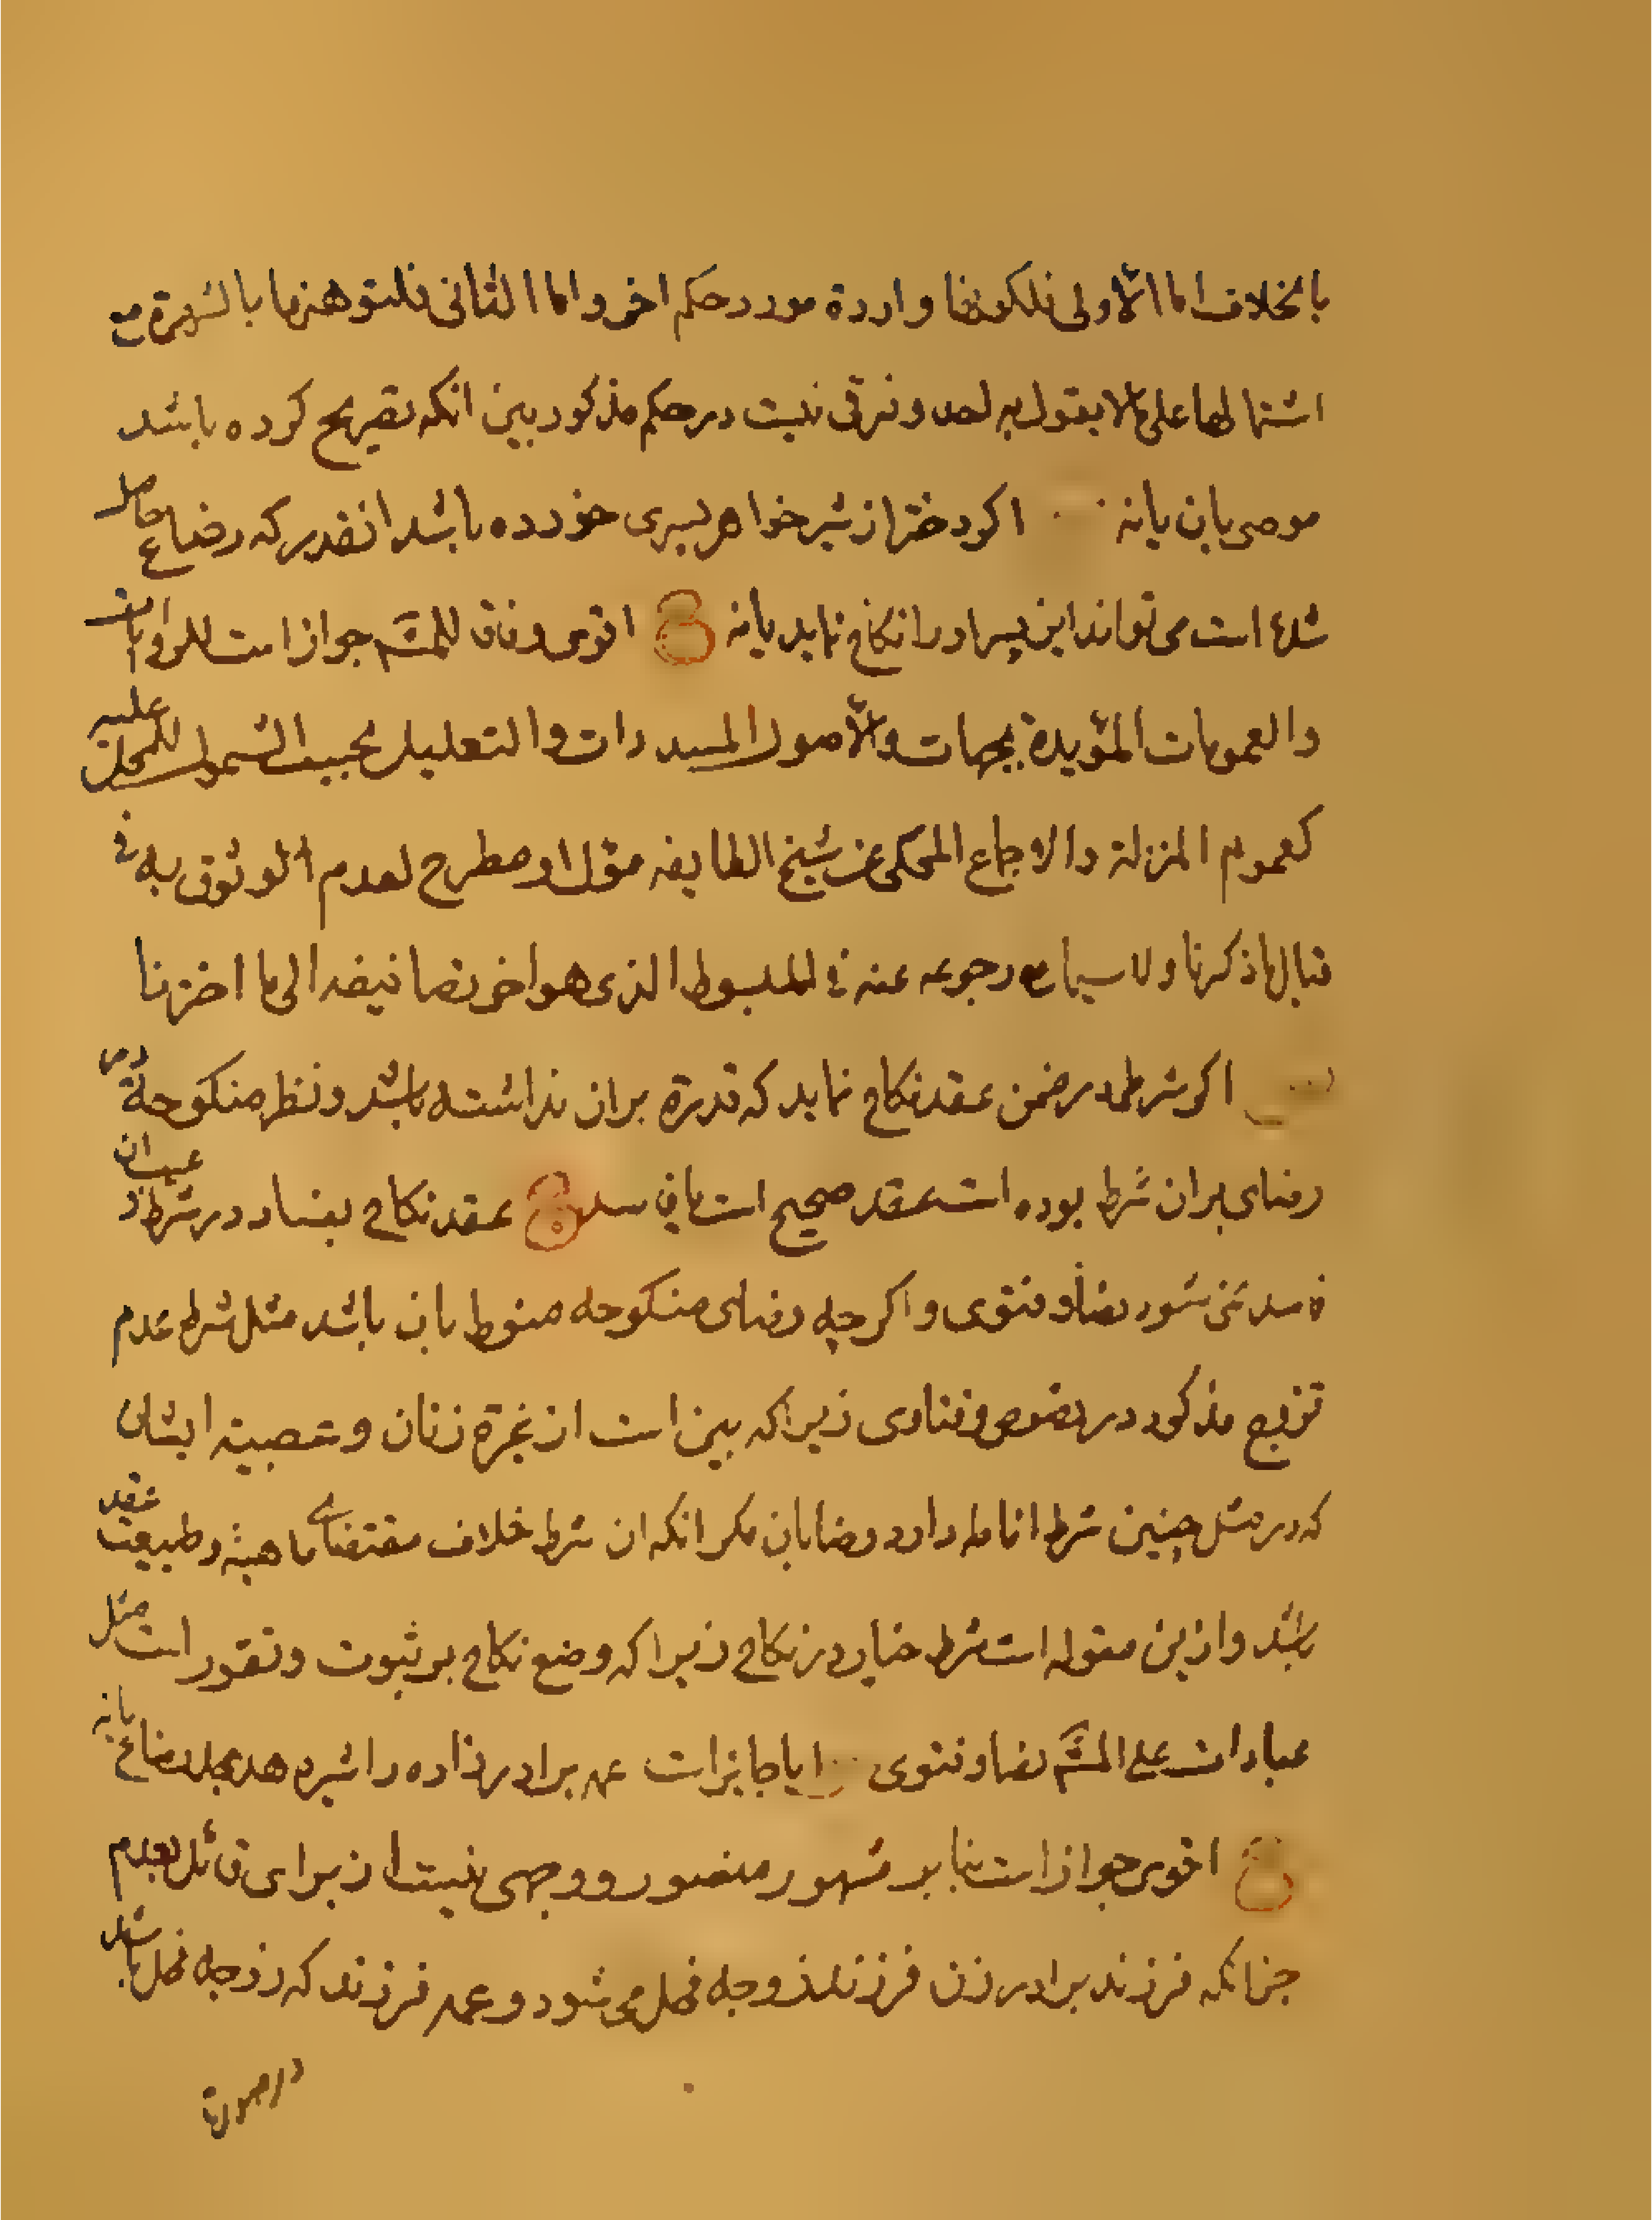 بالخلاف اما الاولی فلکونها واردة مورد حکم اخر و اما الثانی فلتوهنها بالشهرة مع
اشتمالها علی ما لا یقول به احد و فرقی نیست در حکم مذکور بین انکه تصریح کرده باشد
موصی بان یا نه اکر دختر از شیر خواهر پسری خورده باشد انقدر که رضاع حاصل
شده است می تواند این پسر او را نکاح نماید یا نه ج اقوی وفاقا للمش جواز است للروایات
والعمومات المؤیدة بجهات والاصول المسددات والتعلیل بحیث الشمول للمحل علیه
کعموم المنزلة والاجماع المحکی عن شیخ الطایفه مؤل او مطرح لعدم الوثوق به فی
قبال ما ذکرنا ولا سیما مع رجوعه عنه فی المبسوط الذی هو اخر تصانیفه الی ما اخترنا
اکر شرطی در ضمن عقد نکاح نماید که قدرة بران نداشته باشد و نظر منکوحه در
رضای بران شرط بوده است عقد صحیح است یا نه ج عقد نکاح بفساد در شرط در عیب ان
فاسد نمی شود نصا و فتوی و اکر چه رضای منکوحه منوط بان باشد مثل شرط عدم
تزویج مذکور در نصوص و فتاوی زیرا که بین است از غیرة زنان و عصبیة ایشان
که در مثل چنین شرط اناطه دارد رضا بان مکر انکه ان شرط خلاف مقتضای ماهیة و طبیعت عقد
باشد و از این مقوله است شرط خیار در نکاح زیرا که وضع نکاح بر ثبوت و تقرر است مثل
عبادات علی المش نصا و فتوی ایا جایز است عمه برادر زاده را شیر دهد بجد رضاع یا نه
ج اقوی جواز است بنا بر مشهور منصور و وجهی نیست از برای قائل بعدم
چنانکه فرزند برادر زن فرزند زوجه فحل می شود و عمه فرزند که زوجه فحل باشد
در صورة